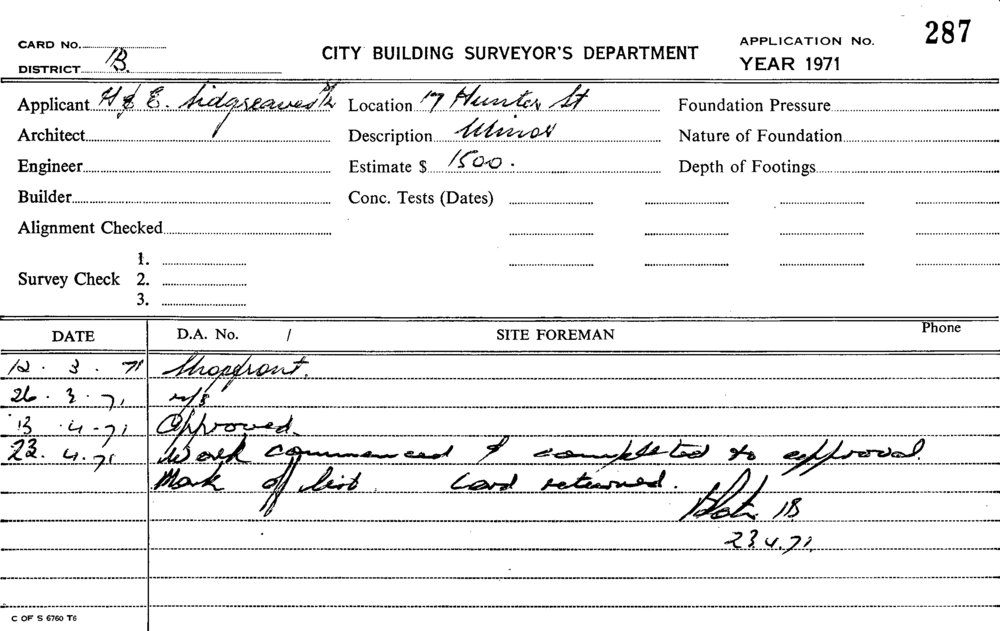 CARD No.
DISTRICT 1B.
CITY BUILDING SURVEYOR'S DEPARTMENT
APPLICATION No. 287
YEAR 1971
Applicant H & E. Sidgreaves
Location 17 Hunter St
Foundation Pressure
Architect
Description Minor
Nature of Foundation
Engineer
Estimate $ 1500.
Depth of Footings
Builder
Conc. Tests (Dates)
Alignment Checked
Survey Check
1.
2.
3.
DATE D.A. No. / SITE FOREMAN Phone
12. 3. 71 Shopfront.
26. 3. 71 n/s
13 . 4 - 71 Approved.
23. 4. 71 Work commenced & completed to approval.
Mark off list. Card returned.
1B
23.4.71.
C OF S 6760 T6